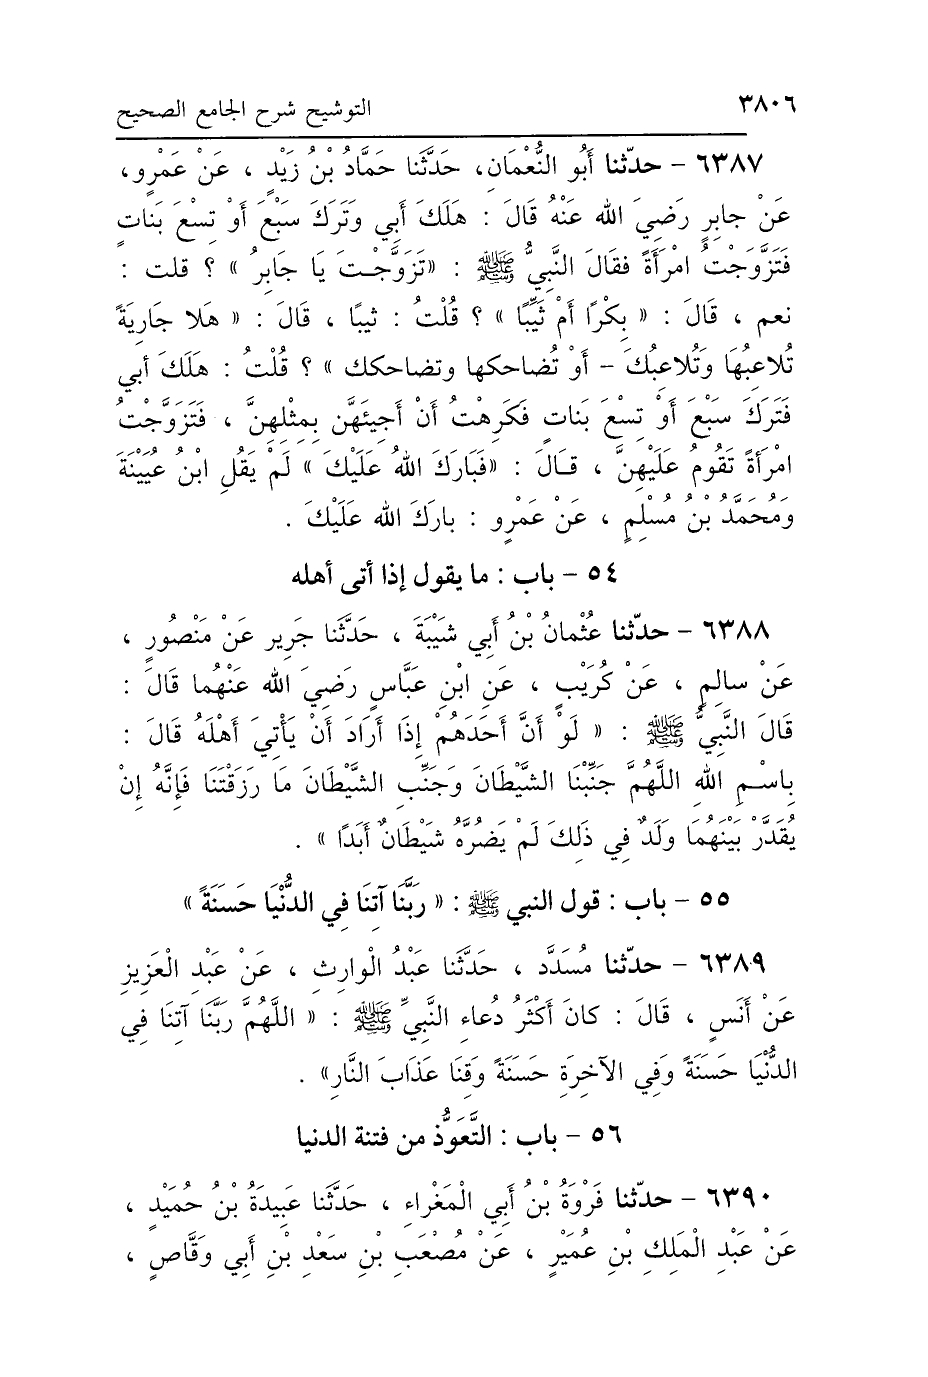 ٣٨٠٦ التوشيح شرح الجامع الصحيح
٦٣٨٧ - حدّثنا أَبُو النُّعْمَانِ، حَدَّثَنَا حَمَّادُ بْنُ زَيْدٍ ، عَنْ عَمْرٍو،
عَنْ جابِرٍ رَضِيَ الله عَنْهُ قَالَ : هَلَكَ أَبِي وَتَرَكَ سَبْعَ أَوْ تِسْعَ بَناتٍ
فَتَزَوَّجْتُ امْرَأَةً فقَالَ النَّبِيُّ ﷺ : «تَزَوَّجْتَ يَا جَابِرُ » ؟ قلت :
نعم ، قَالَ : « بِكْرًا أَمْ ثَيِّبًا » ؟ قُلْتُ : ثيبًا ، قَالَ : « هَلا جَارِيَةً
تُلاعِبُهَا وَتُلاعِبُكَ - أَوْ تُضاحكها وتضاحكك » ؟ قُلْتُ : هَلَكَ أَبي
فَتَرَكَ سَبْعَ أَوْ تِسْعَ بَناتٍ فَكَرِهْتُ أَنْ أَجِيئَهُنَّ بِمِثْلِهِنَّ ، فَتَزَوَّجْتُ
امْرَأَةً تَقُومُ عَلَيْهِنَّ ، قَالَ : «فَبَارَكَ اللهُ عَلَيْكَ » لَمْ يَقُلِ ابْنُ عُيَيْنَةَ
وَمُحَمَّدُ بْنُ مُسْلِمٍ ، عَنْ عَمْرٍو : بارَكَ الله عَلَيْكَ .
٥٤ - باب : ما يقول إذا أتى أهله
٦٣٨٨ - حدّثنا عُثْمانُ بْنُ أَبِي شَيْبَةَ ، حَدَّثَنا جَرِير عَنْ مَنْصُورٍ ،
عَنْ سالِمٍ ، عَنْ كُرَيْبٍ ، عَنِ ابْنِ عَبَّاسٍ رَضِيَ الله عَنْهُما قَالَ :
قَالَ النَّبِيُّ ﷺ : « لَوْ أَنَّ أَحَدَهُمْ إِذَا أَرَادَ أَنْ يَأْتِيَ أَهْلَهُ قَالَ :
بِاسْمِ اللهِ اللَّهُمَّ جَنِّبْنَا الشَّيْطَانَ وَجَنِّبِ الشَّيْطَانَ مَا رَزَقْتَنَا فَإِنَّهُ إِنْ
يُقَدَّرْ بَيْنَهُمَا وَلَدٌ فِي ذَلِكَ لَمْ يَضُرَّهُ شَيْطَانٌ أَبَدًا » .
٥٥ - باب : قول النبي ﷺ : « رَبَّنَا آتِنَا فِي الدُّنْيَا حَسَنَةً »
٦٣٨٩ - حدّثنا مُسَدَّد ، حَدَّثَنا عَبْدُ الْوارِثِ ، عَنْ عَبْدِ الْعَزِيزِ
عَنْ أَنَسٍ ، قَالَ : كانَ أَكْثَرُ دُعاءِ النَّبِيِّ ﷺ : « اللَّهُمَّ رَبَّنَا آتِنَا فِي
الدُّنْيَا حَسَنَةً وَفِي الآخِرَةِ حَسَنَةً وَقِنَا عَذَابَ النَّارِ» .
٥٦ - باب : التَّعَوُّذ من فتنة الدنيا
٦٣٩٠ - حدّثنا فَرْوَةُ بْنُ أَبِي الْمَغْراءِ ، حَدَّثَنا عَبِيدَةُ بْنُ حُمَيْدٍ ،
عَنْ عَبْدِ الْمَلِكِ بْنِ عُمَيْرٍ ، عَنْ مُصْعَبِ بْنِ سَعْدِ بْنِ أَبِي وَقَّاصٍ ،